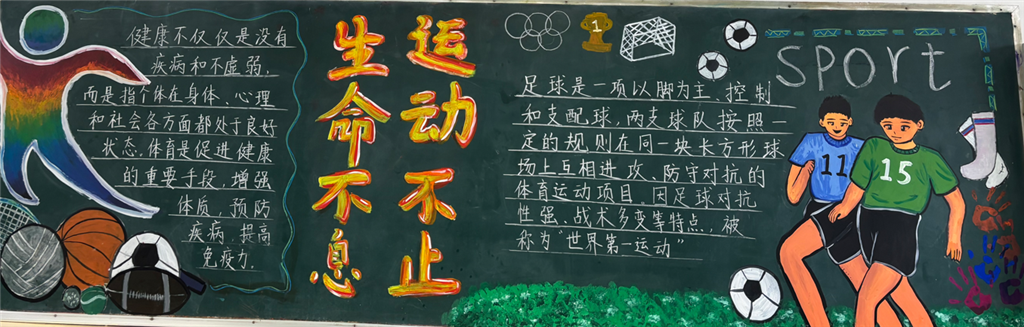 健康不仅仅是没有
疾病和不虚弱,
而是指个体在身体、心理
和社会各方面都处于良好
状态,体育是促进健康
的重要手段,增强
体质、预防
疾病、提高
免疫力.
生命不息
运动不止
1
足球是一项以脚为主、控制
和支配球,两支球队按照一
定的规则在同一块长方形球
场上互相进攻、防守对抗的
体育运动项目.因足球对抗
性强、战术多变等特点,被
称为“世界第一运动”
SPORT
11
15